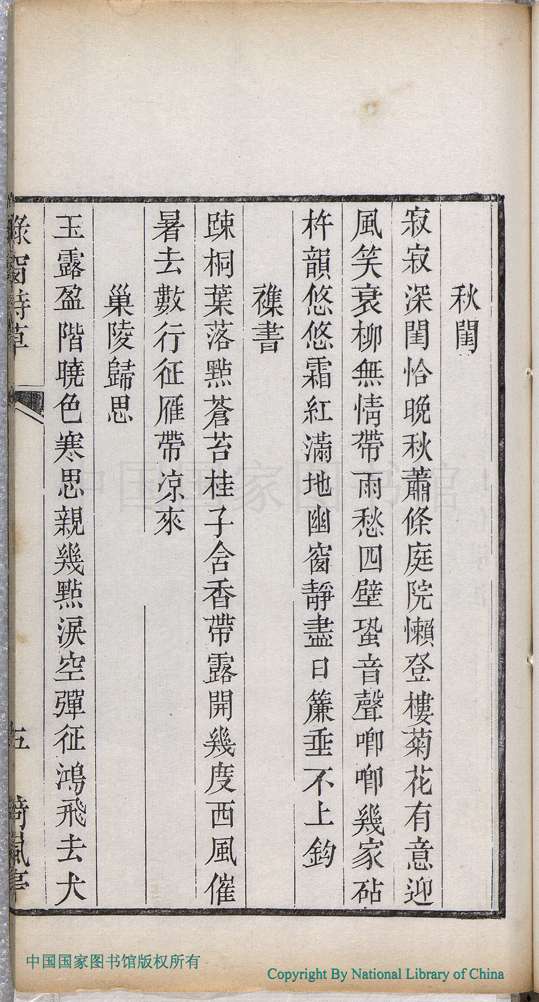 秋閨
寂寂深閨恰晚秋蕭條庭院懶登樓菊花有意迎
風笑衰柳無情帶雨愁四壁蛩音聲喞喞幾家砧
杵韻悠悠霜紅滿地幽窗靜盡日簾垂不上鈎
襍書
踈桐葉落㸃蒼苔桂子含香帶露開幾度西風催
暑去數行征雁帶凉來
巢陵歸思
玉露盈階曉色寒思親幾㸃淚空彈征鴻飛去犬
詩草
五
中国国家图书馆
中国国家图书馆版权所有
Copyright By National Library of China